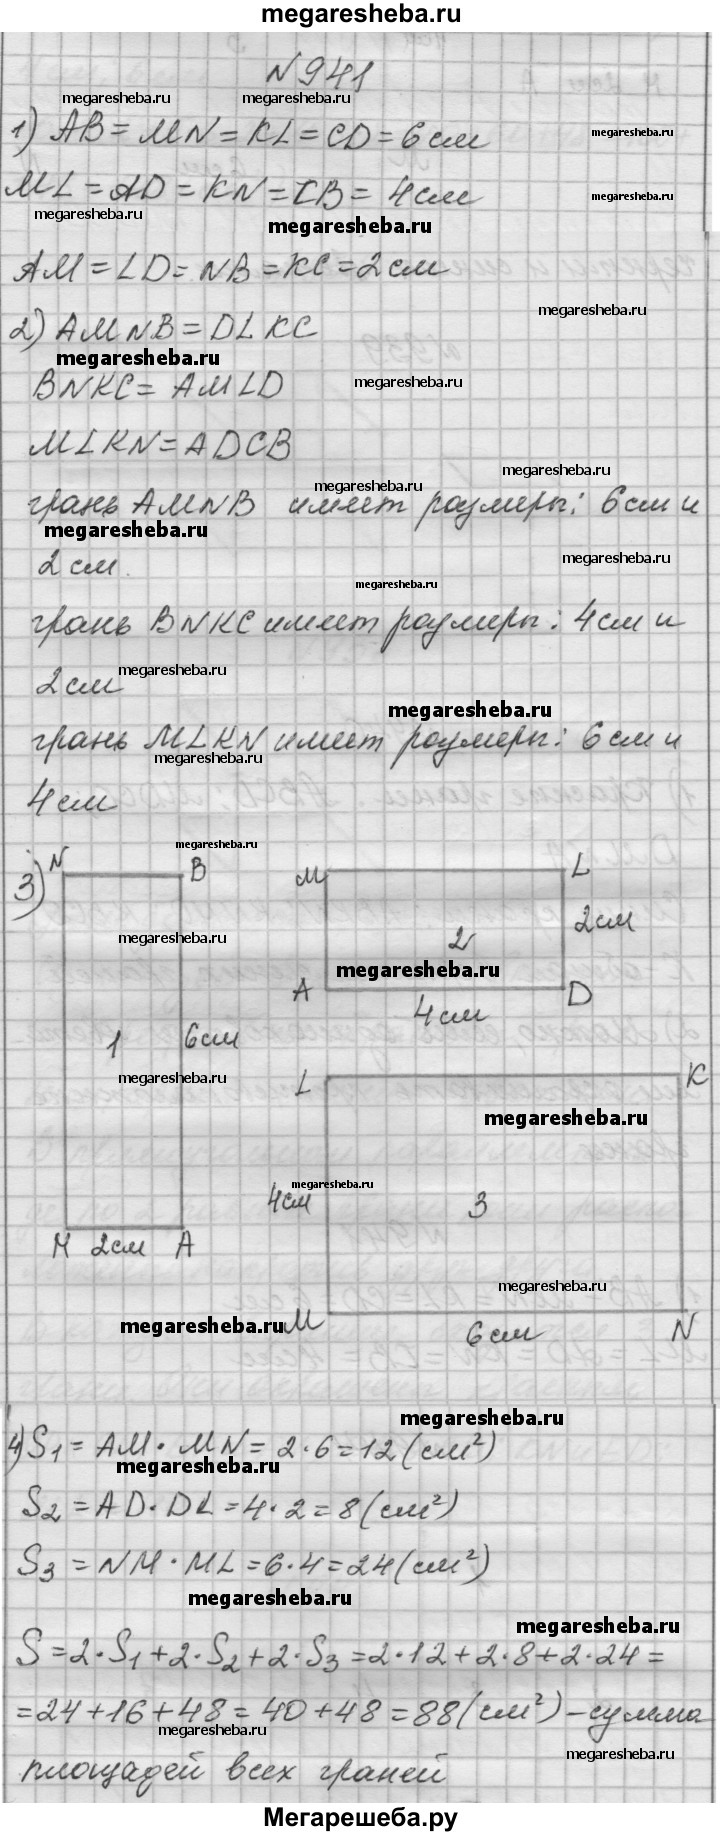 megaresheba.ru
N941
megaresheba.ru megaresheba.ru
1) AB = MN = KL = CD = 6 см
megaresheba.ru
megaresheba.ru
ML = AD = KN = CB = 4 см
megaresheba.ru
megaresheba.ru
megaresheba.ru
AM = LD = NB = KC = 2 см
megaresheba.ru
2) AMNB = DLKC
megaresheba.ru
megaresheba.ru
BNKC = AMLD
MLKN = ADCB
megaresheba.ru
megaresheba.ru
грань AMNB имеет размеры: 6 см и
megaresheba.ru
megaresheba.ru
2 см.
megaresheba.ru
грань BNKC имеет размеры: 4 см и
megaresheba.ru
2 см
megaresheba.ru
грань MLKN имеет размеры: 6 см и
megaresheba.ru
4 см
megaresheba.ru
3) N B M L
2 см
megaresheba.ru
2
megaresheba.ru
A D
4 см
1 6 см
megaresheba.ru
L K
megaresheba.ru
megaresheba.ru
4 см 3
M 2 см A
megaresheba.ru
megaresheba.ru
M 6 см N
megaresheba.ru
4) S1 = AM · MN = 2 · 6 = 12 (см²)
megaresheba.ru
S2 = AD · DL = 4 · 2 = 8 (см²)
S3 = NM · ML = 6 · 4 = 24 (см²)
megaresheba.ru
megaresheba.ru
S = 2 · S1 + 2 · S2 + 2 · S3 = 2 · 12 + 2 · 8 + 2 · 24 =
= 24 + 16 + 48 = 40 + 48 = 88 (см²) – сумма
megaresheba.ru
megaresheba.ru
площадей всех граней
Мегарешеба.ру